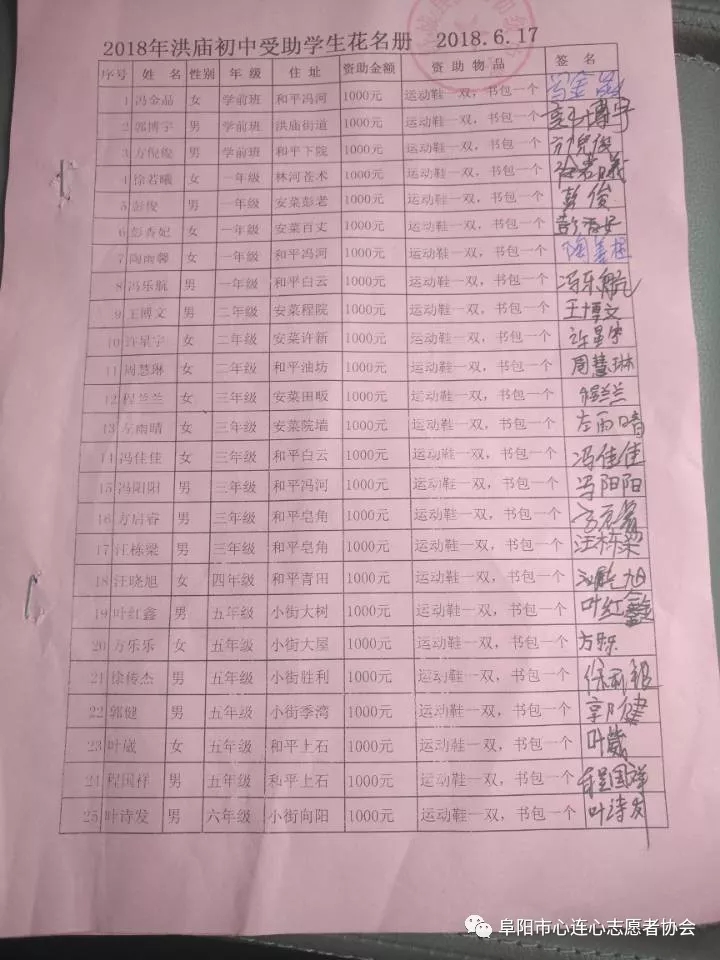 2018年洪庙初中受助学生花名册 2018.6.17
序号 姓 名 性别 年 级 住 址 资助金额 资 助 物 品 签 名
1 冯金品 女 学前班 和平冯河 1000元 运动鞋一双，书包一个
2 郭博宇 男 学前班 洪庙街道 1000元 运动鞋一双，书包一个 郭博宇
3 方倪俊 男 学前班 和平下院 1000元 运动鞋一双，书包一个 方倪俊
4 徐若曦 女 一年级 林河苍术 1000元 运动鞋一双，书包一个 徐若曦
5 彭俊 男 一年级 安菜彭老 1000元 运动鞋一双，书包一个 彭俊
6 彭香妃 女 一年级 安菜百丈 1000元 运动鞋一双，书包一个
7 陶雨馨 女 一年级 和平冯河 1000元 运动鞋一双，书包一个
8 冯乐航 男 一年级 和平白云 1000元 运动鞋一双，书包一个 冯乐航
9 王博文 男 二年级 安菜程院 1000元 运动鞋一双，书包一个 王博文
10 许星宇 女 二年级 安菜许新 1000元 运动鞋一双，书包一个 许星宇
11 周慧琳 女 二年级 和平油坊 1000元 运动鞋一双，书包一个 周慧琳
12 程兰兰 女 三年级 安菜田畈 1000元 运动鞋一双，书包一个 程兰兰
13 左雨晴 女 三年级 安菜院墙 1000元 运动鞋一双，书包一个 左雨晴
14 冯佳佳 女 三年级 和平白云 1000元 运动鞋一双，书包一个 冯佳佳
15 冯阳阳 男 三年级 和平冯河 1000元 运动鞋一双，书包一个 冯阳阳
16 方启睿 男 三年级 和平皂角 1000元 运动鞋一双，书包一个
17 汪栋梁 男 三年级 和平皂角 1000元 运动鞋一双，书包一个 汪栋梁
18 汪晓旭 女 四年级 和平青田 1000元 运动鞋一双，书包一个 汪晓旭
19 叶红鑫 男 五年级 小街大树 1000元 运动鞋一双，书包一个 叶红鑫
20 方乐乐 女 五年级 小街大屋 1000元 运动鞋一双，书包一个 方乐乐
21 徐传杰 男 五年级 小街胜利 1000元 运动鞋一双，书包一个
22 郭健 男 五年级 小街季湾 1000元 运动鞋一双，书包一个 郭健
23 叶葳 女 五年级 和平上石 1000元 运动鞋一双，书包一个 叶葳
24 程国祥 男 五年级 和平上石 1000元 运动鞋一双，书包一个 程国祥
25 叶诗发 男 六年级 小街向阳 1000元 运动鞋一双，书包一个 叶诗发
阜阳市心连心志愿者协会